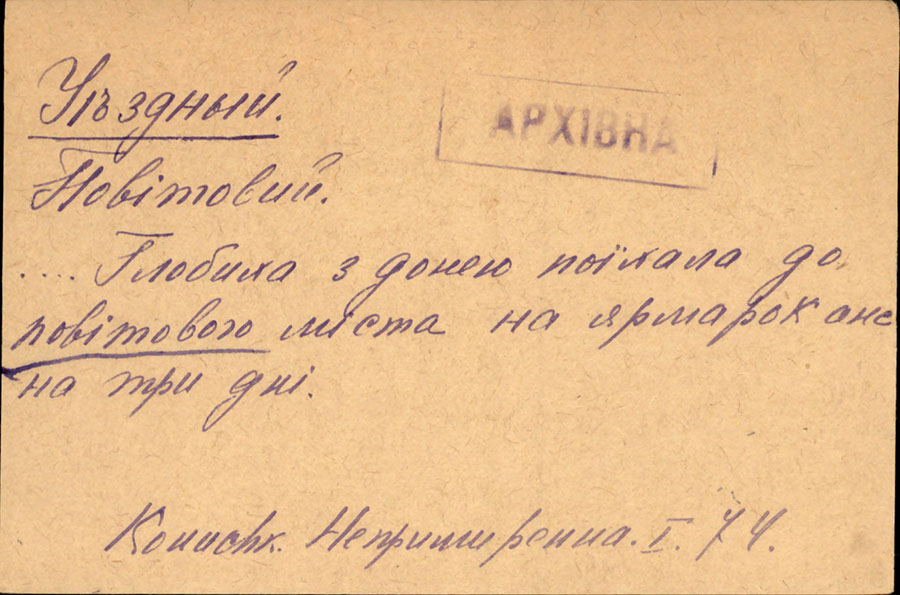 Уѣздный.
АРХІВНА
Повітовий.
.... Глобиха з донею поїхала до
повітового міста на ярмарок аж
на три дні.
Кониськ. Непримиренна. І. 74.